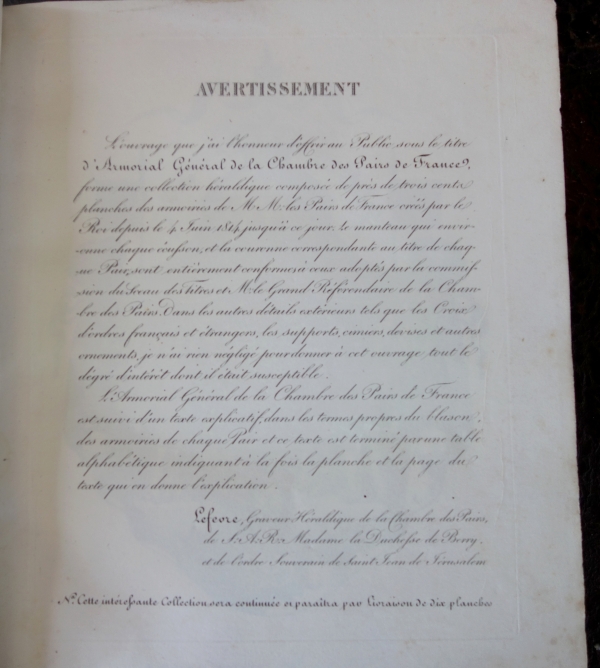 AVERTISSEMENT
L'ouvrage que j'ai l'honneur d'offrir au Public, sous le titre
d'Armorial Général de la Chambre des Pairs de France,
forme une collection héraldique composée de près de trois cents
planches des armoiries de M.M. les Pairs de France créés par le
Roi depuis le 4 Juin 1814 jusqu'à ce jour. Le manteau qui envir-
onne chaque écusson, et la couronne correspondante au titre de chaq-
ue Pair, sont entièrement conformes à ceux adoptés par la commis-
sion du Sceau des Titres et M. le Grand Référendaire de la Cham-
bre des Pairs. Dans les autres détails extérieurs tels que les Croix
d'ordres français et étrangers, les supports, cimiers, devises et autres
ornements, je n'ai rien négligé pour donner à cet ouvrage tout le
dégré d'intérêt dont il était susceptible.
L'Armorial Général de la Chambre des Pairs de France
est suivi d'un texte explicatif, dans les termes propres du blason,
des armoiries de chaque Pair et ce texte est terminé par une table
alphabétique indiquant à la fois la planche et la page du
texte qui en donne l'explication.
Lefevre, Graveur Héraldique de la Chambre des Pairs,
de S.A.R. Madame la Duchesse de Berry,
et de l'ordre Souverain de Saint Jean de Jérusalem
N.ª Cette intéressante Collection sera continuée et paraîtra par Livraison de dix planches